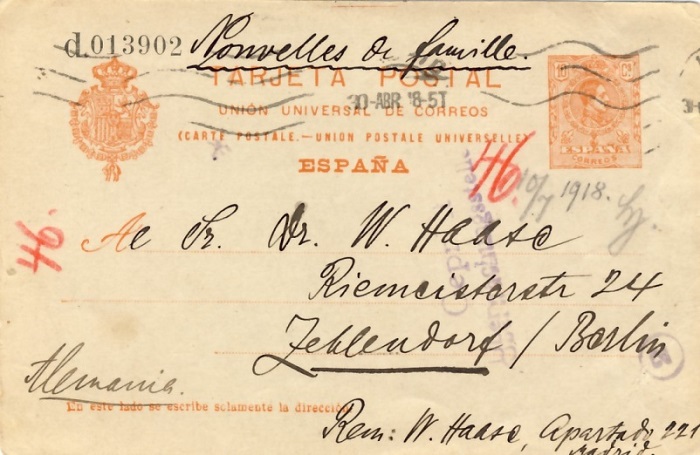 d.013902 Nouvelles de famille.
TARJETA POSTAL
30-ABR 18-5T
10 Cs
UNIÓN UNIVERSAL DE CORREOS
(CARTE POSTALE.—UNION POSTALE UNIVERSELLE)
ESPAÑA
ESPAÑA
CORREOS
46.
10/7 1918.
46.
Al Sr. Dr. W. Haase
Riemeisterstr 24
Zehlendorf / Berlin
Alemania.
En este lado se escribe solamente la dirección
Rem: W. Haase, Apartado 221
Madrid.